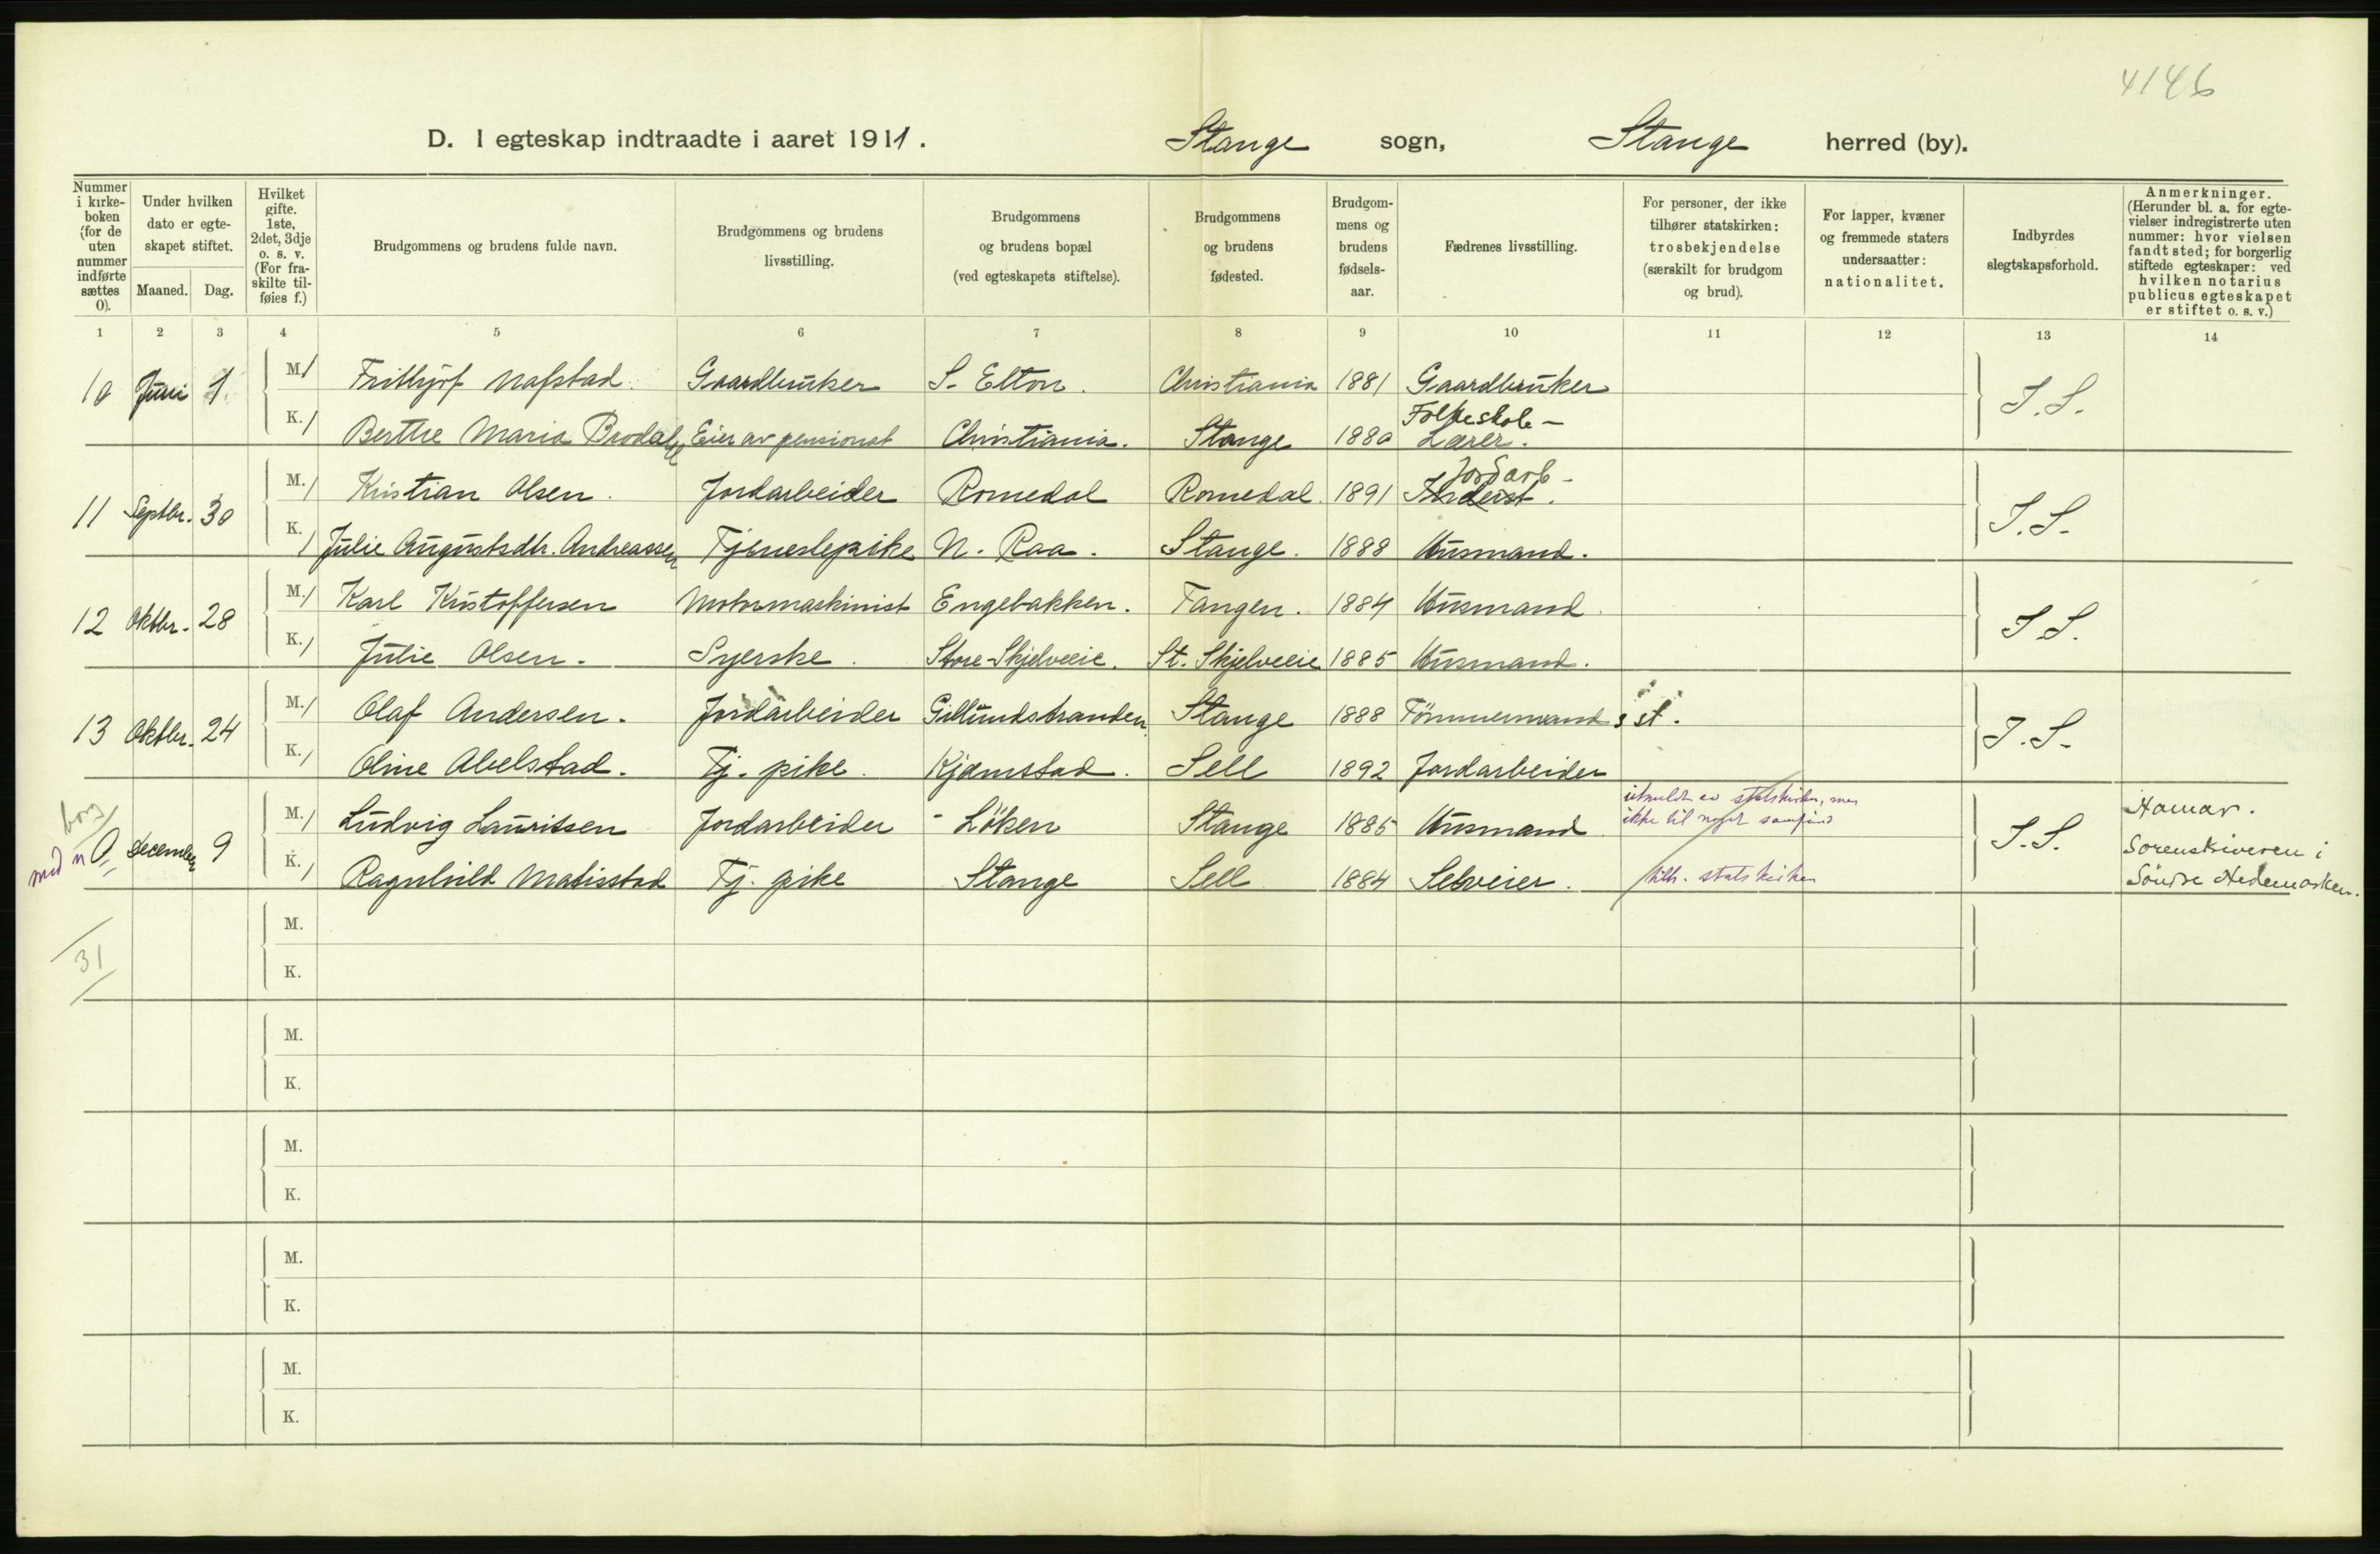 4146
D. I egteskap indtraadte i aaret 1911. Stange sogn, Stange herred (by).
Nummer i kirke-boken (for de uten nummer indførte sættes 0).
Under hvilken dato er egte-skapet stiftet.
Maaned. Dag.
Hvilket gifte. 1ste, 2det, 3dje o. s. v. (For fra-skilte til-føies f.)
Brudgommens og brudens fulde navn.
Brudgommens og brudens livsstilling.
Brudgommens og brudens bopæl (ved egteskapets stiftelse).
Brudgommens og brudens fødested.
Brudgom-mens og brudens fødsels-aar.
Fædrenes livsstilling.
For personer, der ikke tilhører statskirken: trosbekjendelse (særskilt for brudgom og brud).
For lapper, kvæner og fremmede staters undersaatter: nationalitet.
Indbyrdes slegtskapsforhold.
Anmerkninger. (Herunder bl. a. for egte-vielser indregistrerte uten nummer: hvor vielsen fandt sted; for borgerlig stiftede egteskaper: ved hvilken notarius publicus egteskapet er stiftet o. s. v.)
1 2 3 4 5 6 7 8 9 10 11 12 13 14
10 Juni 1. M. / Frithjof Nafstad. Gaardbruker S. Elton. Christiania 1881 Gaardbruker I.S.
K. / Berthe Maria Brodal Eier av pensionat Christiania. Stange 1880 Folkeskole- Lærer.
11 Septbr. 30 M. / Kristian Olsen. Jordarbeider Romedal Romedal. 1891 Jordarb- I.S.
K. / Julie Augustsdtr. Andreassen Tjenestepike N. Raa. Stange. 1888 Husmand.
12 Oktbr. 28 M. / Karl Kristoffersen Motormaskinist Engebakken. Tangen. 1884 Husmand. I S.
K. / Julie Olsen. Syerske. Store-Skjelveeie. St. Skjelveeie 1885 Husmand.
13 Oktbr. 24 M. / Olaf Andersen. Jordarbeider Gillundstranden. Stange 1888 Tömmermand s st. I.S.
K. / Oline Abelstad. Tj. pike. Kjemstad. Sell 1892 Jordarbeider
borg
med n 0 December 9 M. / Ludvig Lauritsen Jordarbeider - Löken Stange 1885 Husmand. utmeldt av statskirken, men ikke til noget samfund I.S. Hamar.
K. / Ragnhild Matisstad Tj. pike Stange Sell 1884 Selveier. tilh. statskirken Sorenskriveren i Söndre Hedemarken.
31
M.
K.
M.
K.
M.
K.
M.
K.
M.
K.